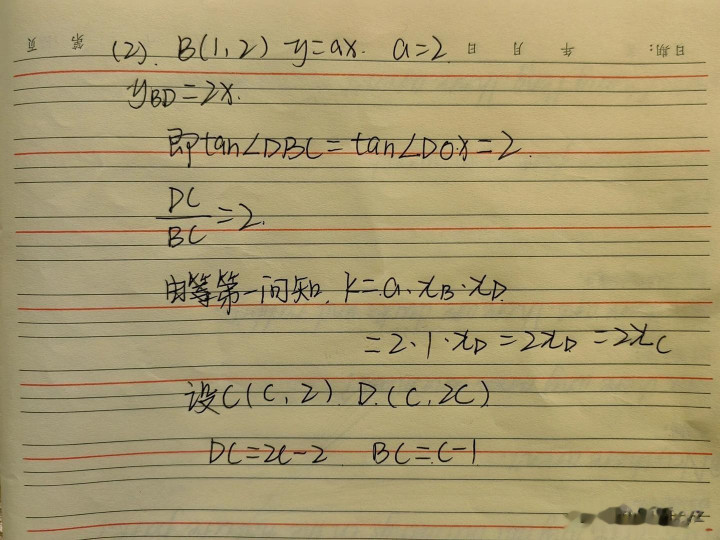 第 页
日期: 年 月 日
(2). B(1,2) y=ax. a=2
y_BD=2x.
即tan∠DBC=tan∠DOx=2.
DC/BC=2.
由第一问知, k=a·x_B·x_D
=2·1·x_D=2x_D=2x_C
设C(c,2) D(c,2c)
DC=2c-2 BC=c-1